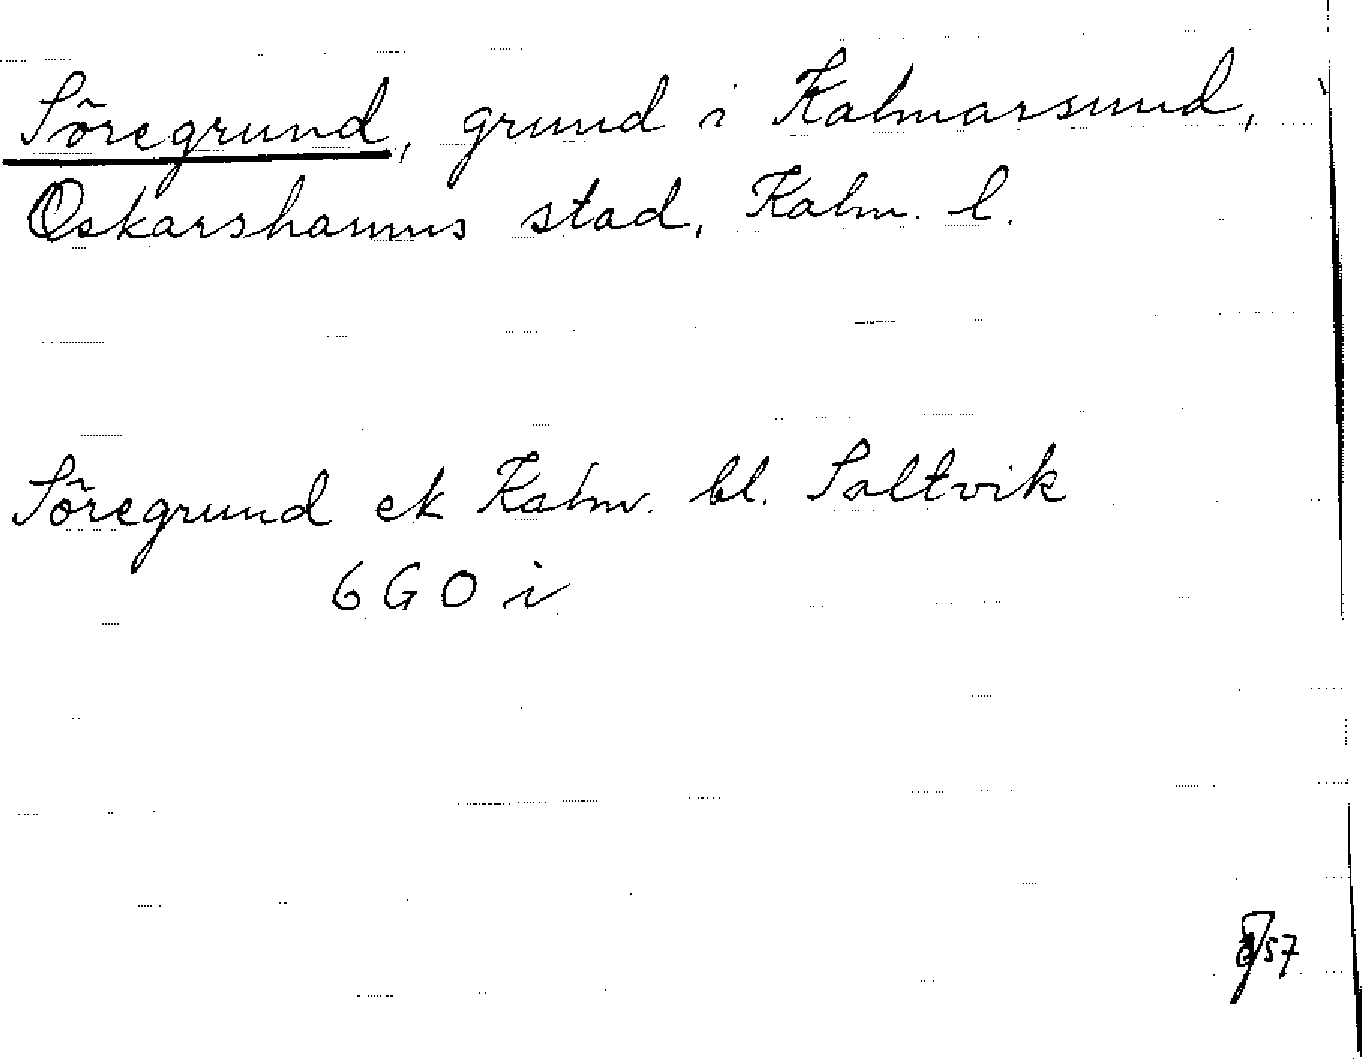 Söregrund, grund i Kalmarsund,
Oskarshamns stad, Kalm. l.
Söregrund ek Kalm. bl. Saltvik
6 G O i
57